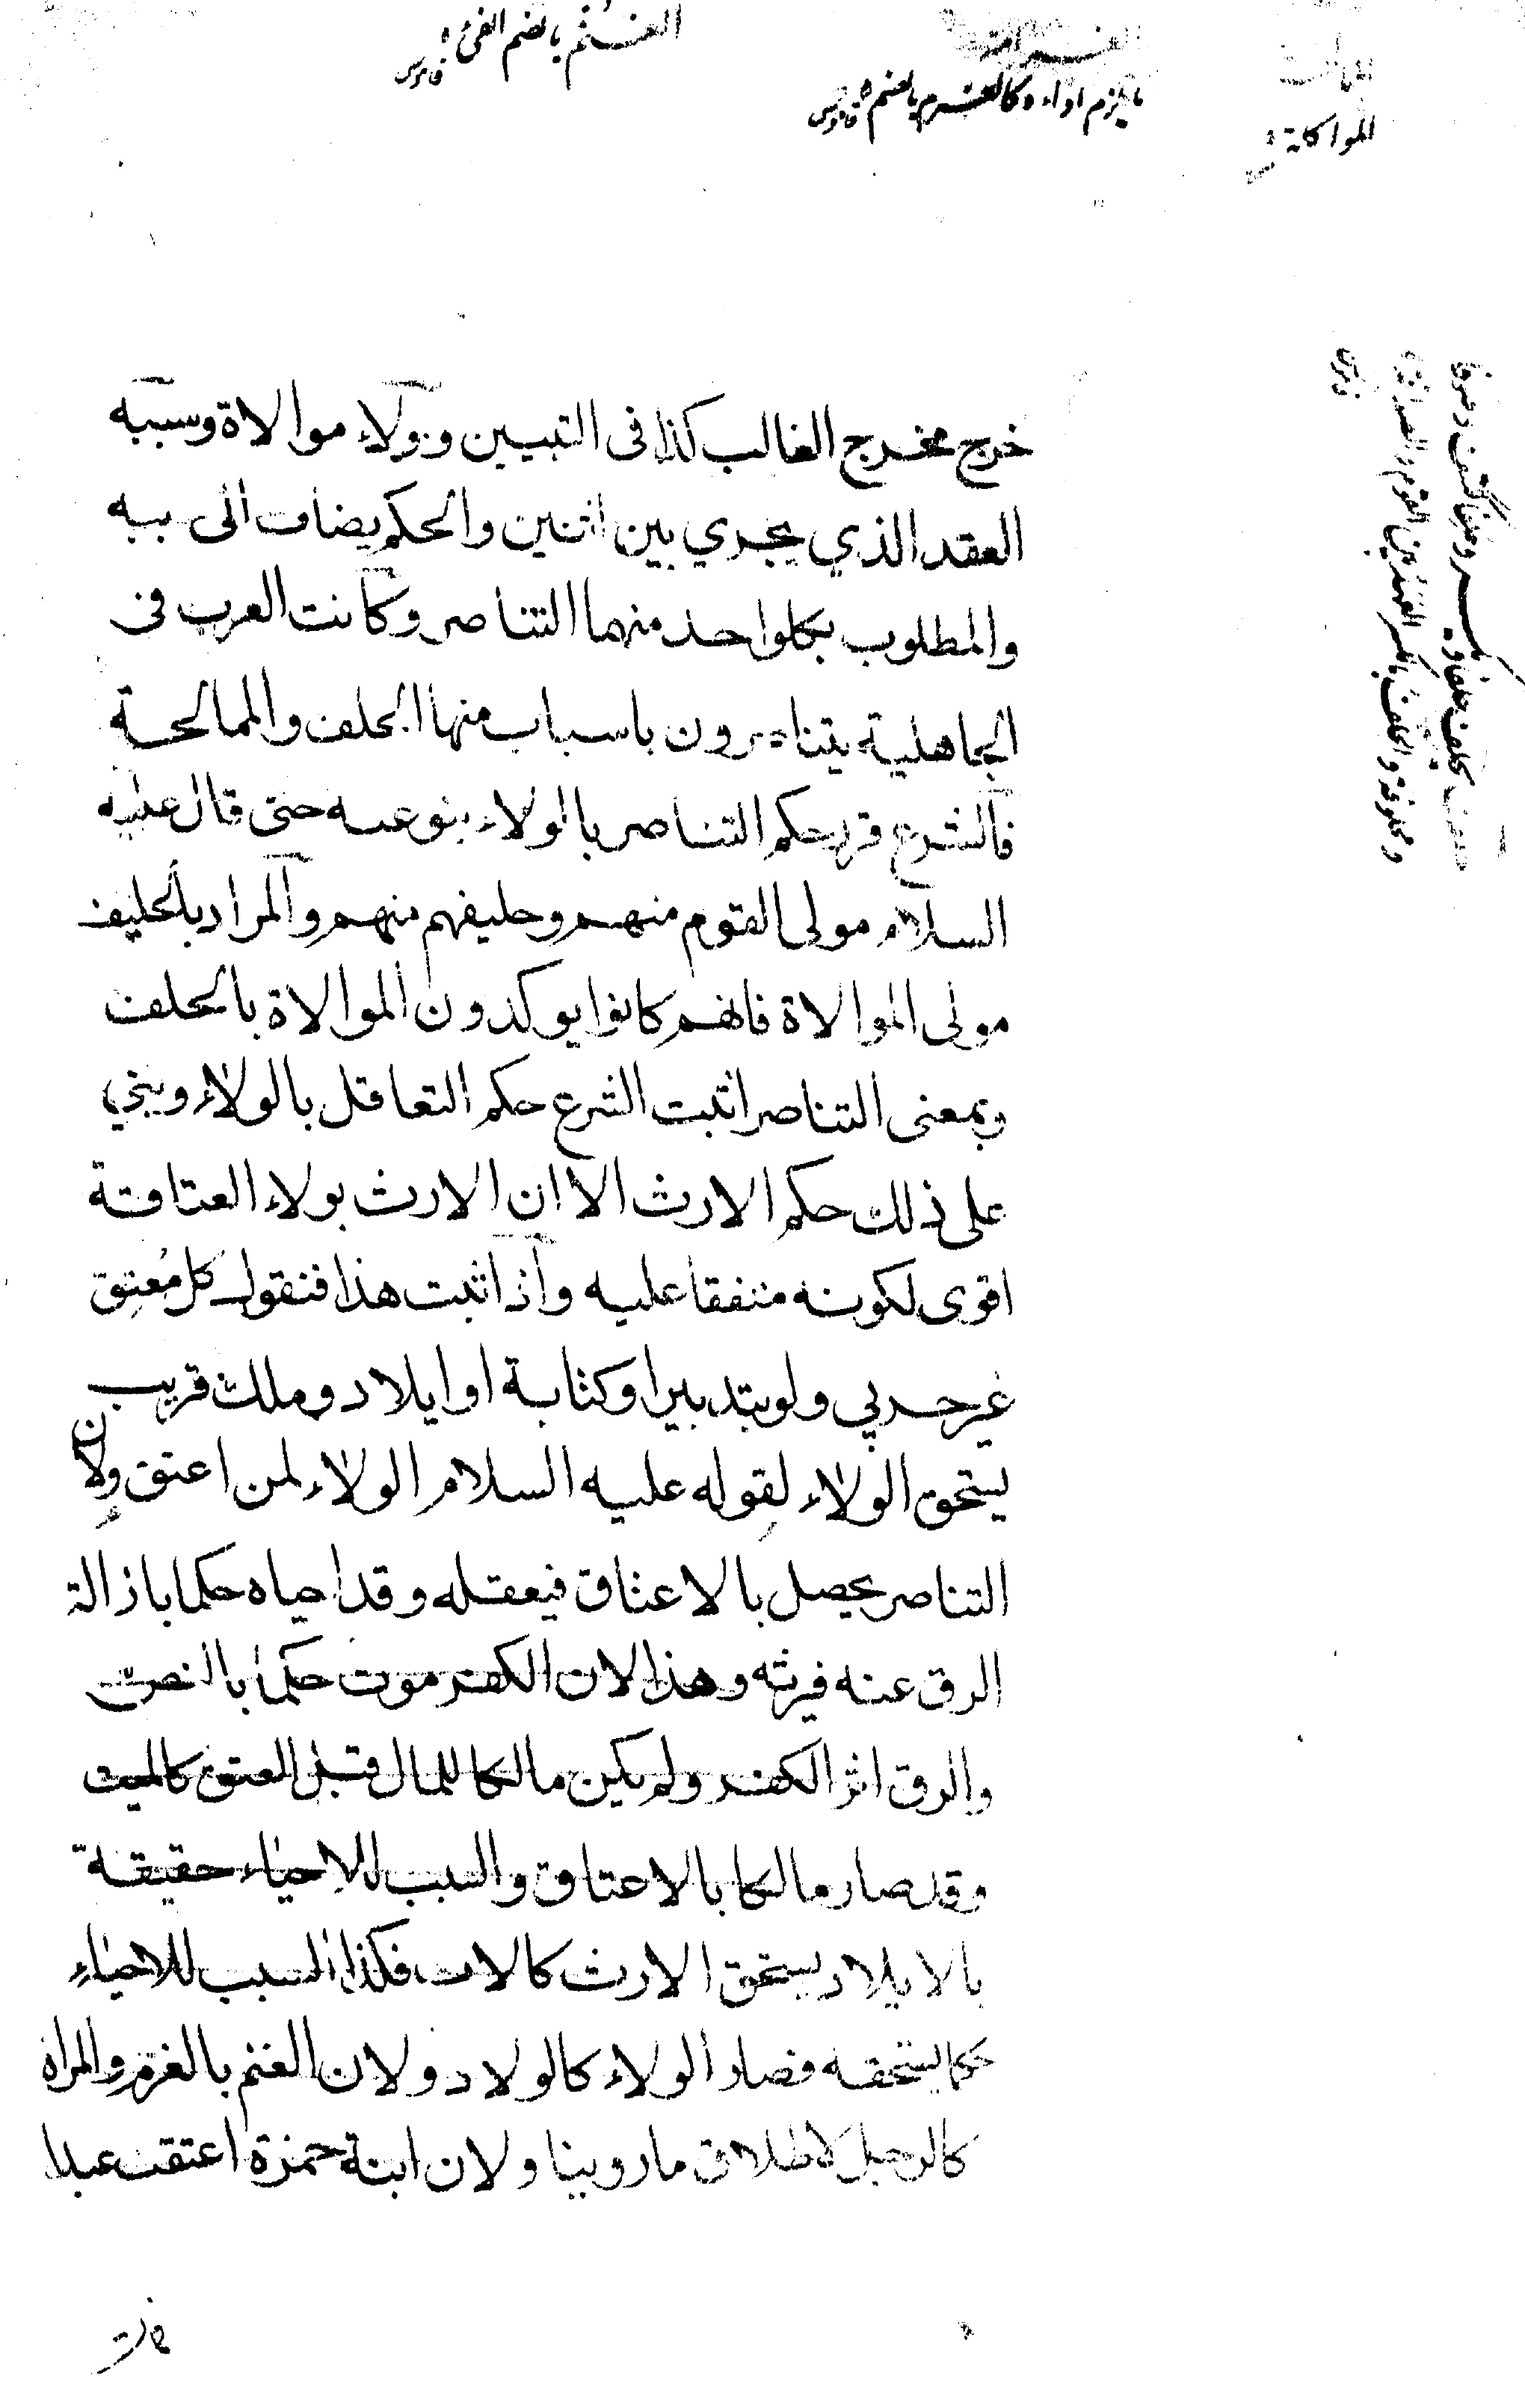 الغنم بالضم الفئ قاموس
ما يلزم اداءه وكالغرم بالضم قاموس
المواكلة
حلف يحلف حلفا ويكسر وحلفا ككتف
ومحلوفة والحلف بالكسر العهد بين القوم والصداقة
خرج مخرج الغالب كذا فى التبيين وولاء موالاة وسببه
العقد الذي يجري بين اثنين والحكم يضاف الى سببه
والمطلوب بكل واحد منهما التناصر وكانت العرب فى
الجاهلية يتناصرون باسباب منها الحلف والممالحة
فالشرع قرر حكم التناصر بالولاء بنوعيه حتى قال عليه
السلام مولى القوم منهم وحليفهم منهم والمراد بالحليف
مولى الموالاة فانهم كانوا يوكدون الموالاة بالحلف
وبمعنى التناصر اثبت الشرع حكم التعاقل بالولاء وبني
على ذلك حكم الارث الا ان الارث بولاء العتاقة
اقوى لكونه متفقا عليه واذا ثبت هذا فنقول كل مُعتِق
غير حربي ولو بتدبير او كتابة او ايلاد وملك قريب
يستحق الولاء لقوله عليه السلام الولاء لمن اعتق ولان
التناصر يحصل بالاعتاق فيعقله وقد احياه حكما بازالة
الرق عنه فيرثه وهذا لان الكفر موت حكما بالنص
والرق اثر الكفر ولم يكن مالكا للمال قبل العتق كالميت
وقد صار مالكا بالاعتاق والسبب للاحياء حقيقة
بالايلاد يستحق الارث كالاب فكذا السبب للاحياء
حكما يستحقه فصار الولاء كالولاد ولان الغنم بالغرم والمراة
كالرجل لاطلاق ما روينا ولان ابنة حمزة اعتقت عبدا